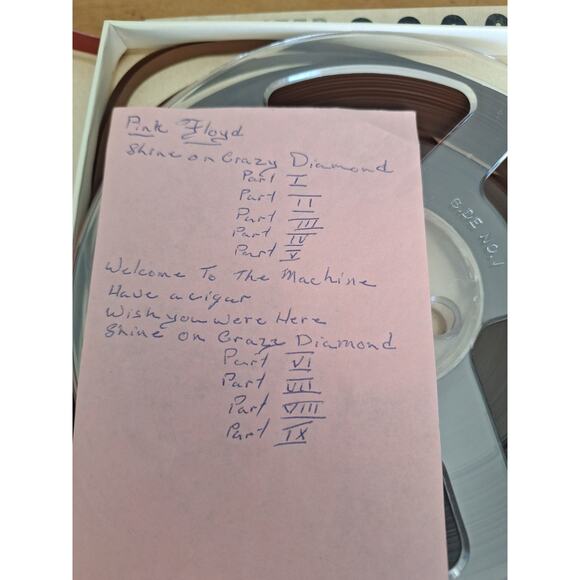 Pink Floyd
Shine on Crazy Diamond
Part I
Part II
Part III
Part IV
Part V
Welcome To The Machine
Have a cigar
Wish you Were Here
Shine on Crazy Diamond
Part VI
Part VII
Part VIII
Part IX
SIDE NO. 1